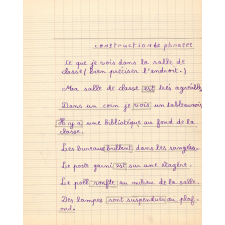 construction de phrases
Ce que je vois dans la salle de
classe (bien préciser l'endroit.)
Ma salle de classe est très agréable
Dans un coin je vois un tableau noir
Il y a une bibliotèque au fond de la
classe.
Les bureaux brillent dans les rangées.
Le poste garni est sur une étagère.
Le poêle ronfle au milieu de la salle.
Des lampes sont suspendu au plaf-
ond.